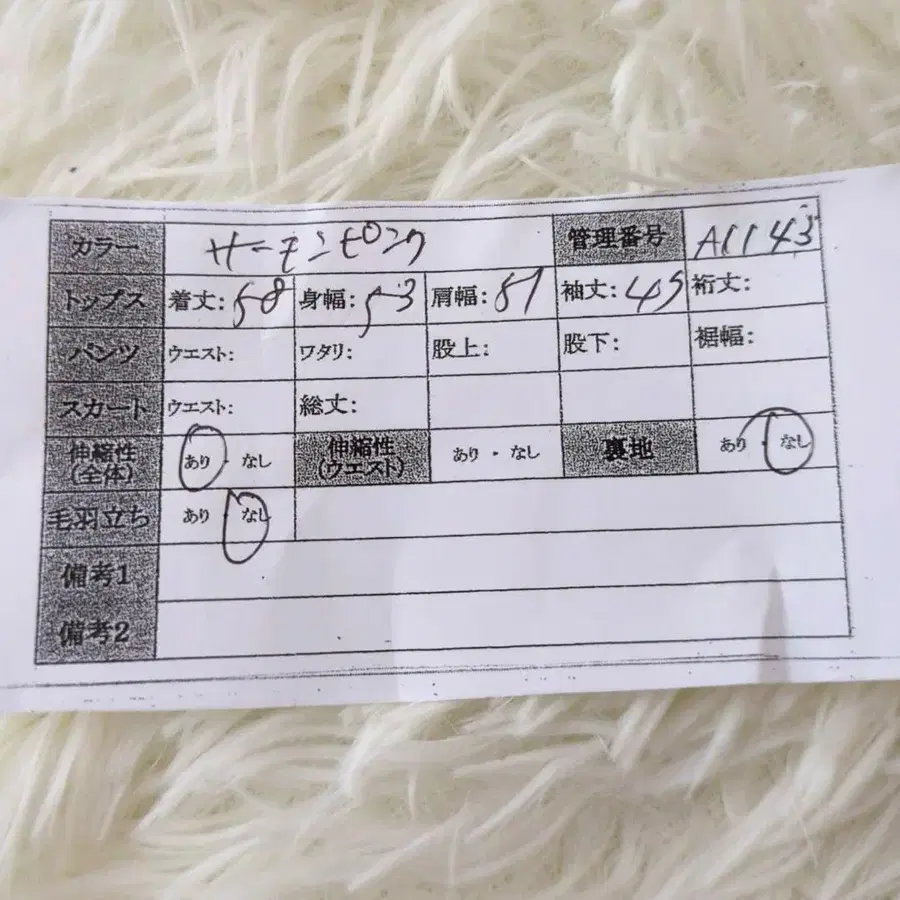 カラー サーモンピンク 管理番号 A1143
トップス 着丈:58 身幅:53 肩幅:51 袖丈:45 裄丈:
パンツ ウエスト: ワタリ: 股上: 股下: 裾幅:
スカート ウエスト: 総丈:
伸縮性(全体) あり・なし 伸縮性(ウエスト) あり・なし 裏地 あり・なし
毛羽立ち あり・なし
備考1
備考2